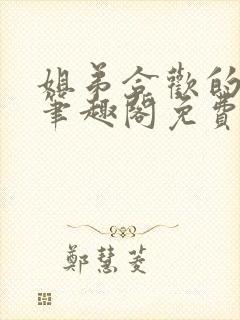 姐弟合歡的
筆趣閣免費
鄭慧菱